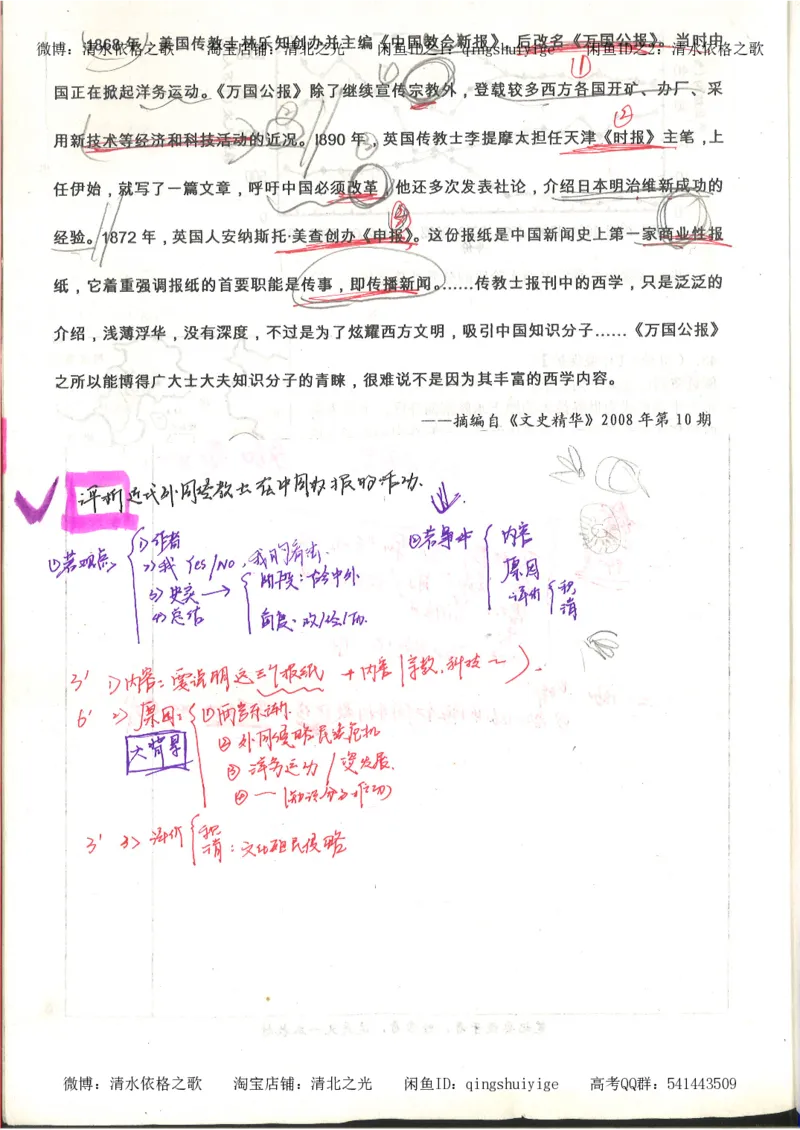 微博：清水依格之歌 淘宝店铺：清北之光 闲鱼ID之1：qingshuiyige 闲鱼ID之2：清水依格之歌
1868年，美国传教士林乐知创办并主编《中国教会新报》，后改名《万国公报》。当时中
① ①
国正在掀起洋务运动。《万国公报》除了继续宣传宗教外，登载较多西方各国开矿、办厂、采
② ②
用新技术等经济和科技活动的近况。1890年，英国传教士李提摩太担任天津《时报》主笔，上
任伊始，就写了一篇文章，呼吁中国必须改革，他还多次发表社论，介绍日本明治维新成功的
③
经验。1872年，英国人安纳斯托·美查创办《申报》。这份报纸是中国新闻史上第一家商业性报
纸，它着重强调报纸的首要职能是传事，即传播新闻。……传教士报刊中的西学，只是泛泛的
介绍，浅薄浮华，没有深度，不过是为了炫耀西方文明，吸引中国知识分子……《万国公报》
之所以能博得广大士大夫知识分子的青睐，很难说不是因为其丰富的西学内容。
——摘编自《文史精华》2008年第10期
评析近代外国传教士在中国办报的活动.
①若观点
1)作者
2)我 Yes/No，我的看法.
3)史实
4)总结
阶段：古今中外
角度：政/经/
②若事件
内容
原因
评价
积
消
3' 1)内容：要说明这三个报纸 +内容(宗教.科技~).
6' 2)原因：
大背景
①两
②外国侵略民族危机
③洋务运动/资发展.
④一(知识分子推动)
3' 3)评价
积
消：文化殖民侵略
微博：清水依格之歌 淘宝店铺：清北之光 闲鱼ID：qingshuiyige 高考QQ群：541443509